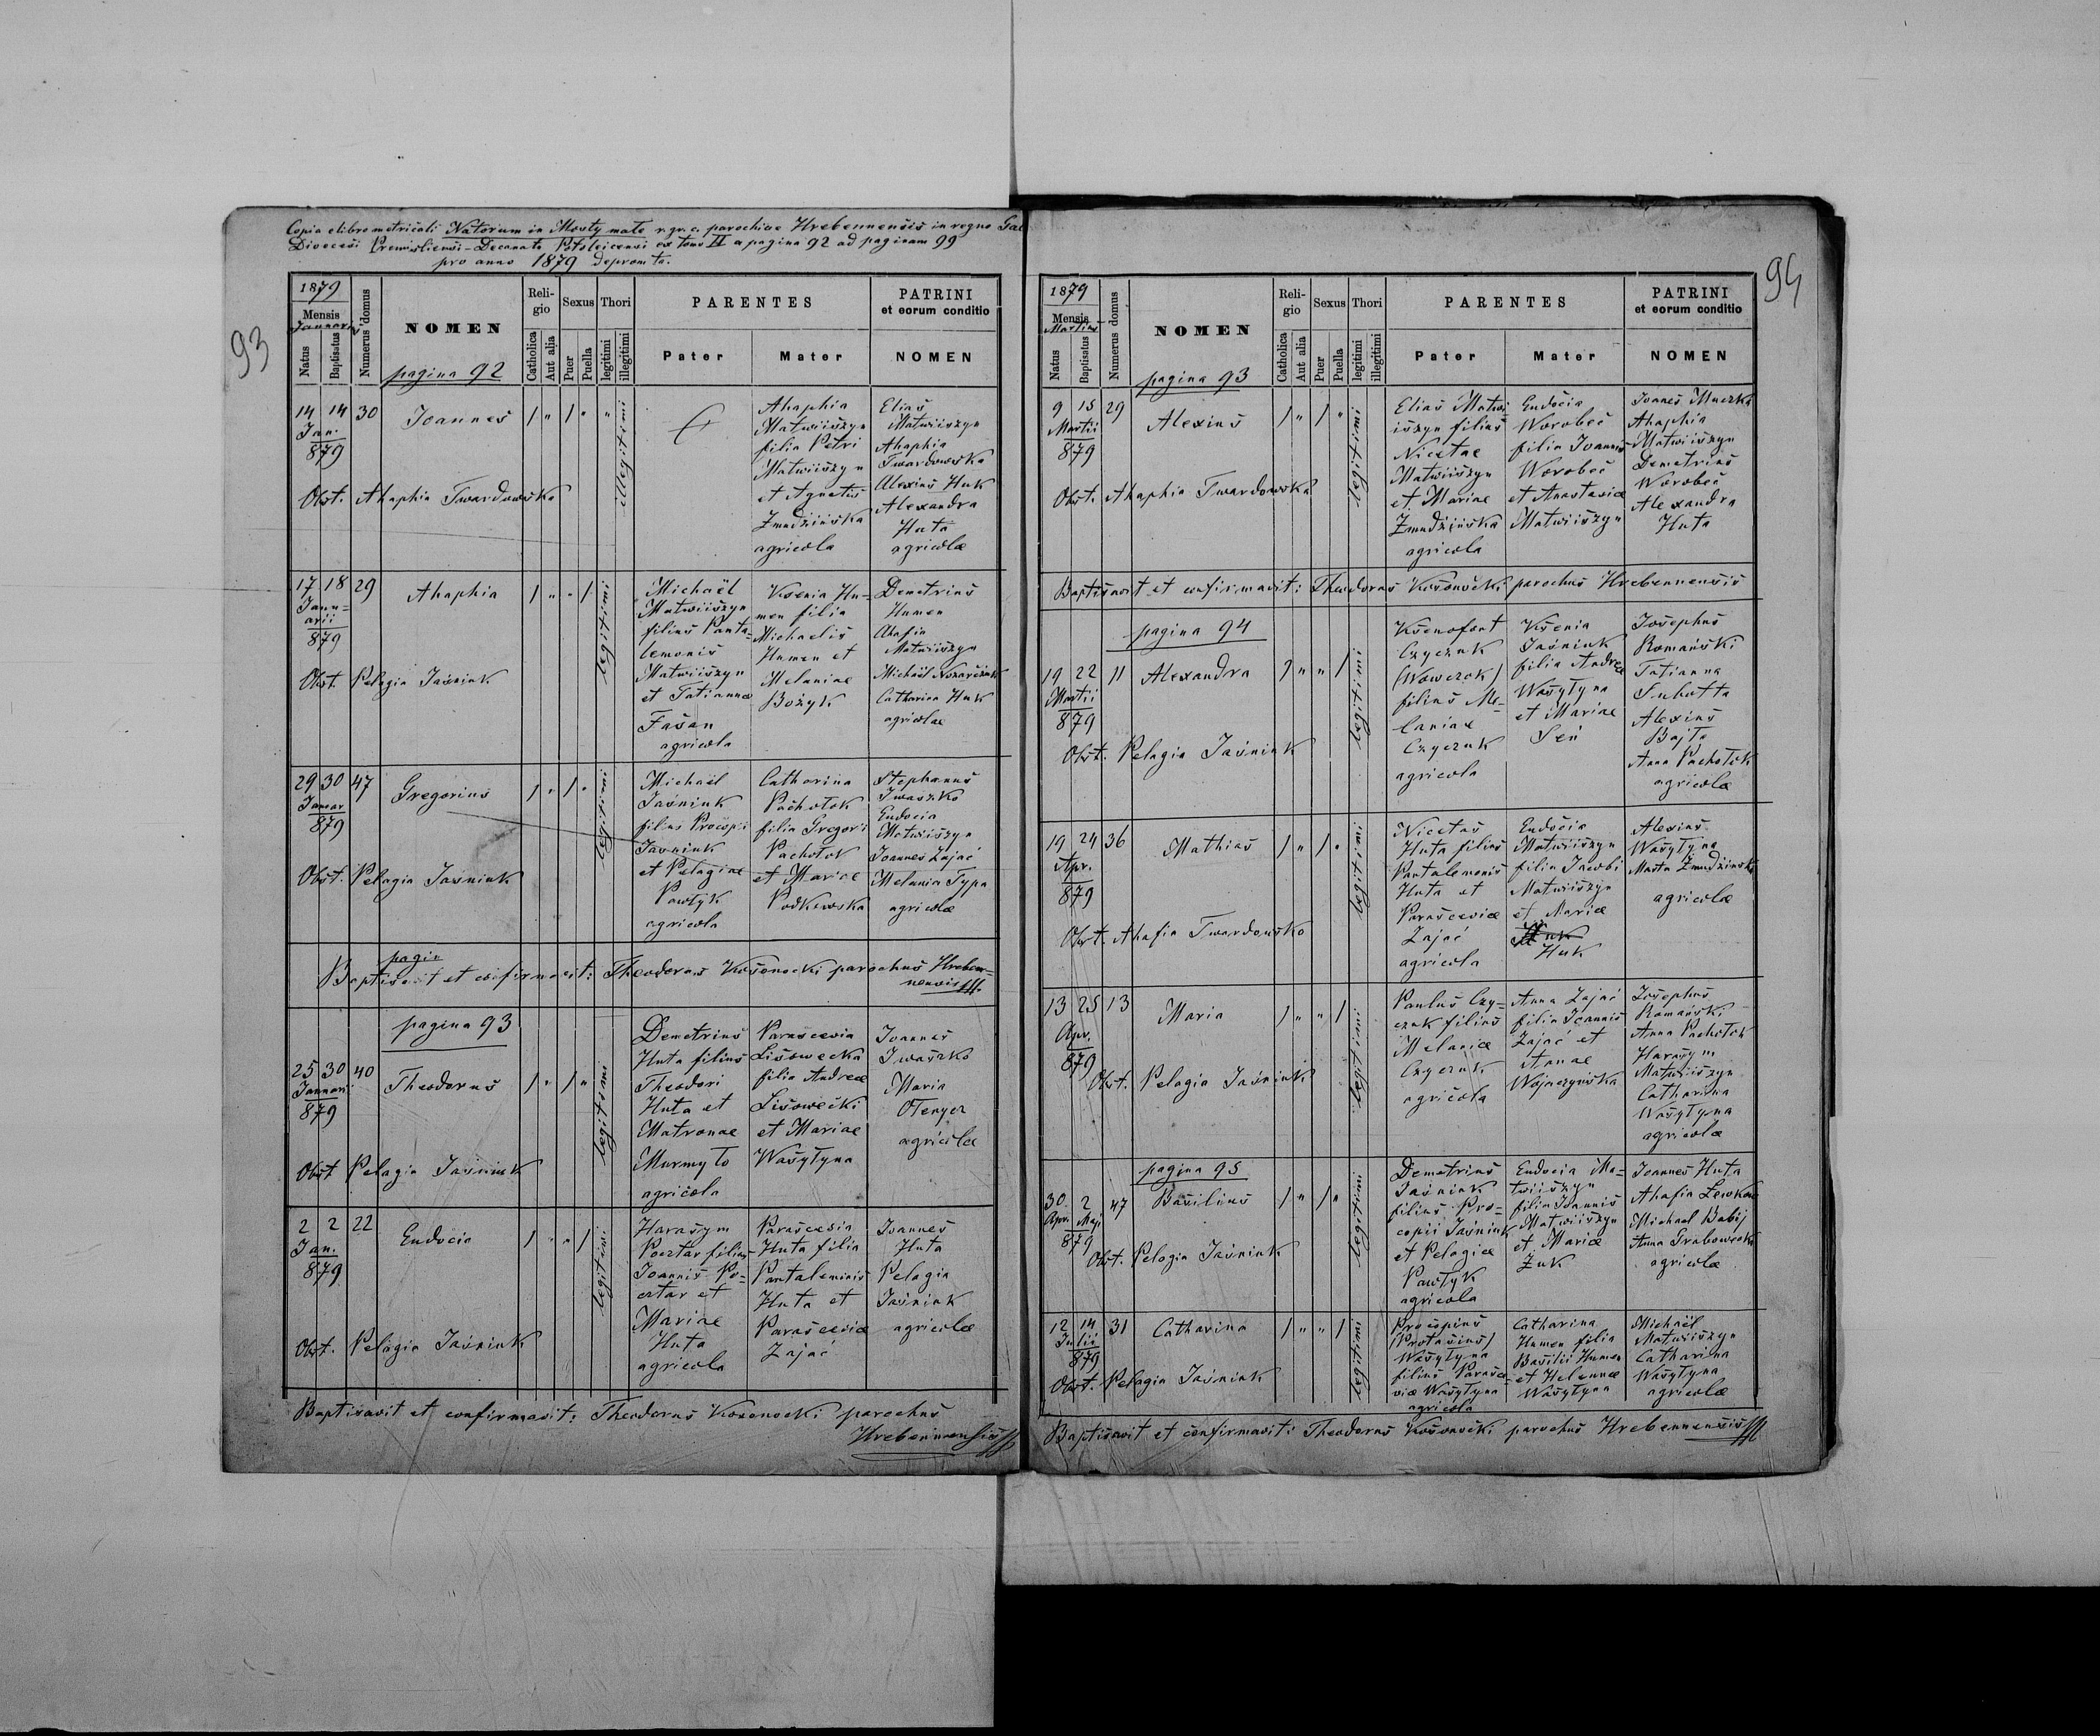 Copia e libro metricali Natorum in Mosty małe r. gr. c. parochiae Hrebennensis in regno Gal
Dioecesi Premisliensi - Decanatu Potylicensi ex tomo II a pagina 92 ad paginam 99
pro anno 1879 depromta.
93
1879
Mensis
Januarius
Natus
Baptisatus
Numerus domus
NOMEN
pagina 92
Religio
Catholica
Aut alia
Sexus
Puer
Puella
Thori
legitimi
illegitimi
PARENTES
Pater
Mater
PATRINI
et eorum conditio
NOMEN
14 14 30 Joannes
Jan.
879
Obst. Ahaphia Twardowska
illegitimi
Ahaphia
Matwiiszyn
filia Petri
Matwiiszyn
et Agnetis
Żmudzińska
agricola
Elias
Matwiiszyn
Ahaphia
Twardowska
Alexius Huk
Alexandra
Huta
agricolæ
17 18 29 Ahaphia
Janu=
arii
879
Obst. Pelagia Jaśniuk
legitimi
Michaël
Matwiiszyn
filius Panta-
lemonis
Matwiiszyn
et Tatiannæ
Fasan
agricola
Ksenia Hu-
men filia
Michaelis
Humen et
Melaniae
Bożyk
Demetrius
Humen
Ahafia
Matwiiszyn
Michaël
Catharina Huk
agricolae
29 30 47 Gregorius
Januar
879
Obst. Pelagia Jaśniuk
legitimi
Michaël
Jaśniuk
filius Procopii
Jaśniuk
et Pelagiae
Pawłyk
agricola
Catharina
Pachołok
filia Gregorii
Pachołok
et Mariæ
Stephanus
Iwaszko
Eudocia
Matwiiszyn
Joannes Zając
Melania Typa
agricolæ
pagin
Baptisavit et confirmavit: Theodorus Kosonocki parochus Hreben=
nensis
pagina 93
25 30 40 Theodorus
Januari
879
Obst Pelagia Jaśniuk
legitimi
Demetrius
Huta filius
Theodori
Huta et
Matronae
Murmyło
agricola
Parascevia
Lisowecka
filia Andreæ
Lisowecki
et Mariae
Wasyłyna
Joannes
Iwaszko
Maria
agricolæ
2 2 22 Eudocia
Jan.
879
Obst. Pelagia Jaśniuk
legitimi
Harasym
Pocztar filius
Joannis Po-
cztar et
Mariae
Huta
agricola
Parascevia
Huta filia
Pantalemonis
Huta et
Parasceviæ
Zając
Joannes
Huta
Pelagia
Jaśniuk
agricolæ
Baptisavit et confirmavit: Theodorus Kosonocki parochus
Hrebennensis
94
1879
Mensis
Martius
Natus
Baptisatus
Numerus domus
NOMEN
pagina 93
Religio
Catholica
Aut alia
Sexus
Puer
Puella
Thori
legitimi
illegitimi
PARENTES
Pater
Mater
PATRINI
et eorum conditio
NOMEN
9 15 29 Alexius
Martii
879
Obst. Ahaphia Twardowska
legitimi
Elias Matwi
iszyn filius
Nicetae
Matwiiszyn
et Mariae
Żmudzińska
agricola
Eudocia
Worobec
filia Joannis
Worobec
et Anastasiæ
Matwiiszyn
Joannes Muczka
Ahaphia
Matwiiszyn
Demetrius
Worobec
Alexandra
Huta
Baptisavit et confirmavit: Theodorus Kosonocki parochus Hrebennensis
pagina 94
19 22 11 Alexandra
Martii
879
Obst. Pelagia Jaśniuk
legitimi
Ksenofont
Czyczuk
(Wowczok)
filius Me-
laniae
Czyczuk
agricola
Ksenia
Jaśniuk
filia Andreæ
Wasyłyna
et Mariae
Seń
Josephus
Romański
Tatianna
Alexius
Bajła
Anna Pachołok
agricolæ
19 24 36 Mathias
Apr.
879
Obst. Ahafia Twardowska
legitimi
Nicetas
Huta filius
Pantalemonis
Huta et
Parasceviæ
Zając
agricola
Eudocia
Matwiiszyn
filia Jacobi
Matwiiszyn
et Mariæ
Huk
Alexius
Wasyłyna
Marta Żmudzińska
agricolæ
13 25 13 Maria
Apr.
879
Obst. Pelagia Jaśniuk
legitimi
Paulus Czy=
czuk filius
Melaniæ
Czyczuk
agricola
Anna Zając
filia Joannis
Zając et
Annae
Wojnczyńska
Josephus
Romański
Anna Pachołok
Harasym
Matwiiszyn
Catharina
Wasyłyna
agricolæ
pagina 95
30 2 47 Basilius
Apr. Maji
879
Obst. Pelagia Jaśniuk
legitimi
Demetrius
Jaśniuk
filius Pro-
copii Jaśniuk
et Pelagiæ
Pawłyk
agricola
Eudocia Ma-
twiiszyn
filia Joannis
Matwiiszyn
et Mariæ
Żuk
Joannes Huta
Ahafia
Michael Babij
Anna Grabowecka
agricolæ
12 14 31 Catharina
Julii
879
Obst. Pelagia Jaśniuk
legitimi
Procopius
(Protasius)
Wasyłyna
filius Parasce
viæ Wasyłyna
agricola
Catharina
Humen filia
Basilii Humen
et Helennæ
Wasyłyna
Michaël
Matwiiszyn
Catharina
Wasyłyna
agricolæ
Baptisavit et confirmavit: Theodorus Kosonocki parochus Hrebennensis